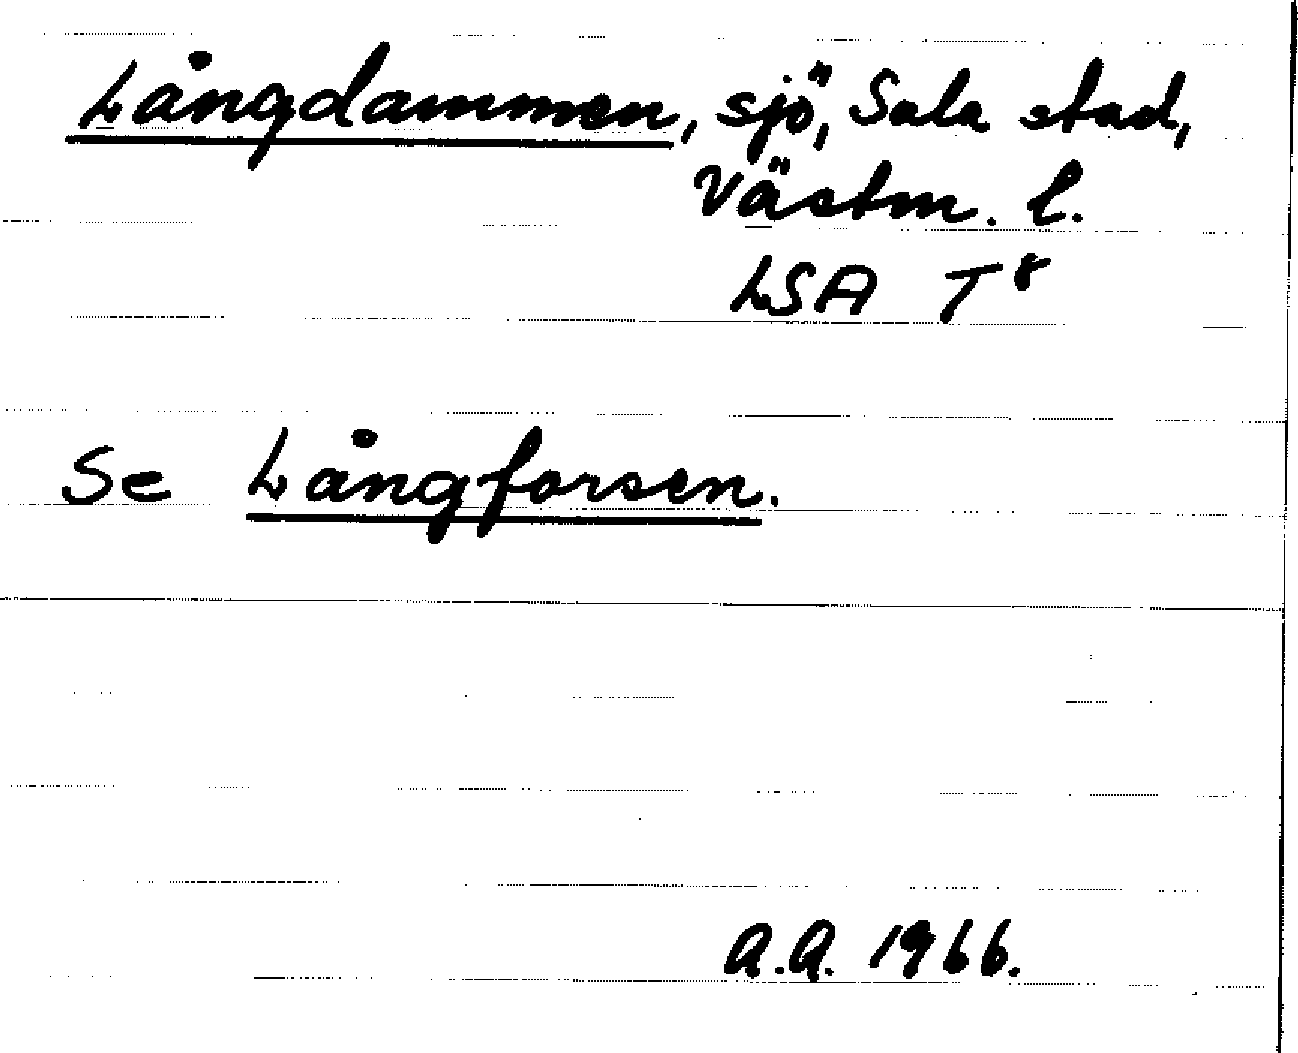 Långdammen, sjö, Sala stad,
Västm. l.
LSA T⁸
Se Långforsen.
A.A. 1966.